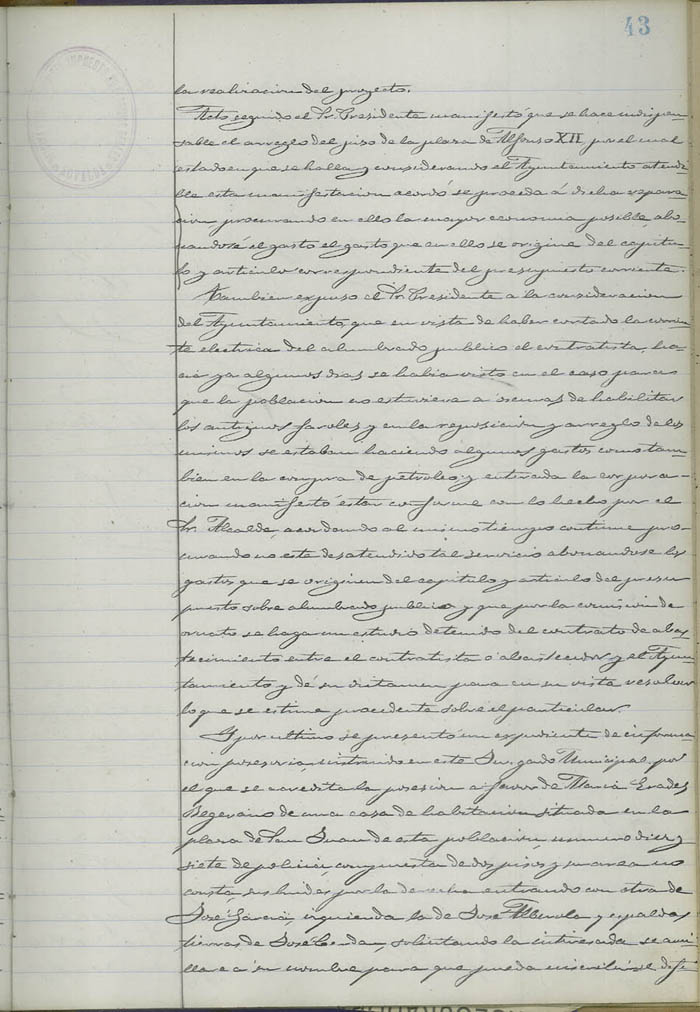 43
la realizacion del proyecto.
Acto seguido el Sr. Presidente manifestó que se hace indispen
sable el arreglo del piso de la plaza de Alfonso XII, por el mal
estado en que se halla y considerando el Ayuntamiento atendi
ble esta manifestacion acordó se proceda á dicha repara
cion procurando en ello la mayor economia posible, abo
nandose el gasto el gasto que en ello se origine del capitu
lo y articulo correspondiente del presupuesto corriente.
Tambien expuso el Sr. Presidente a la consideracion
del Ayuntamiento, que en vista de haber cortado la corrien
te electrica del alumbrado publico el contratista, ha
cia ya algunos dias se habia visto en el caso para
que la poblacion no estuviera a oscuras de habilitar
los antiguos faroles y en la reposicion y arreglo de los
mismos se estaban haciendo algunos gastos como tam
bien en la compra de petroleo y enterada la corpora-
cion manifestó estar conforme con lo hecho por el
Sr. Alcalde, acordando al mismo tiempo continue pro
curando no esté desatendido tal servicio abonandose los
gastos que se originen del capitulo y articulo del presu
puesto sobre alumbrado publico y que por la comision de
ornato se haga un estudio detenido del contrato de abas
tecimiento entre el contratista ó abastecedor y el Ayun
tamiento y dé su dictamen para en su vista resolver
lo que se estime procedente sobre el particular.
Y por ultimo se presentó un expediente de informa
cion posesoria, instruido en este Juzgado Municipal por
el que se acredita la posesion a favor de Maria
de una casa de habitacion situada en la
plaza de San Juan de esta poblacion, numero diez y
siete de policia, compuesta de dos pisos y su area no
consta, sus lindes por la derecha entrando con otra de
José Garcia, izquierda la de José Alberola y espaldas
tierras de José Cerdan, solicitando la interesada se ami
llare a su nombre para que pueda inscribirse